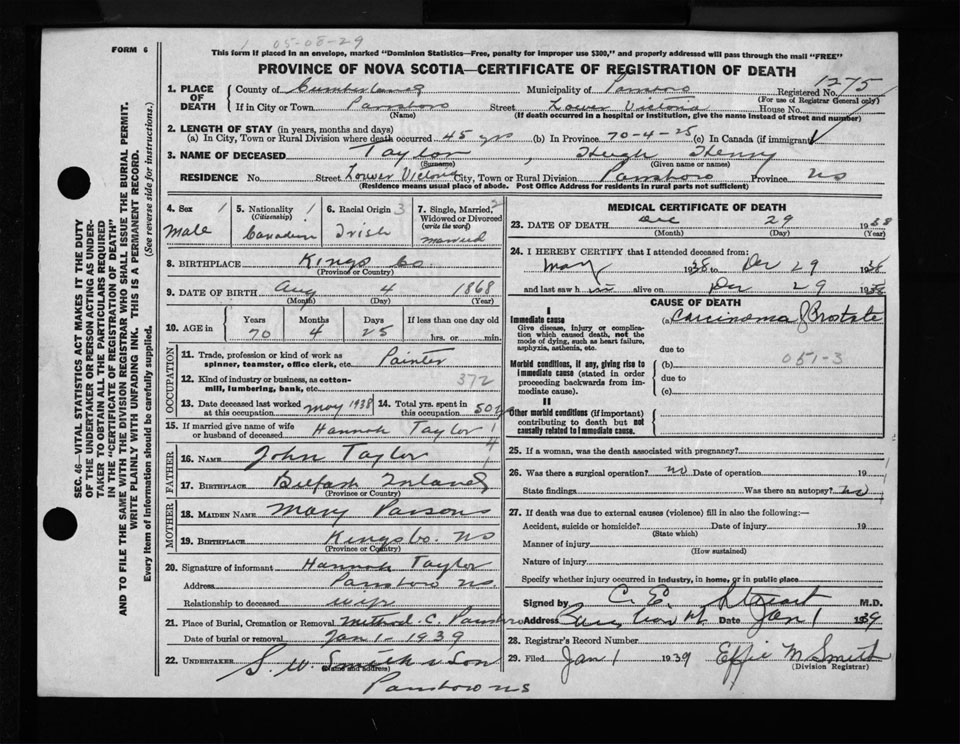 FORM 6
05-08-29
This form if placed in an envelope, marked "Dominion Statistics—Free, penalty for improper use $300," and properly addressed will pass through the mail "FREE"
PROVINCE OF NOVA SCOTIA—CERTIFICATE OF REGISTRATION OF DEATH
SEC. 46—VITAL STATISTICS ACT MAKES IT THE DUTY
OF THE UNDERTAKER OR PERSON ACTING AS UNDER-
TAKER TO OBTAIN ALL THE PARTICULARS REQUIRED
IN THE "CERTIFICATE OF REGISTRATION OF DEATH"
AND TO FILE THE SAME WITH THE DIVISION REGISTRAR WHO SHALL ISSUE THE BURIAL PERMIT.
WRITE PLAINLY WITH UNFADING INK. THIS IS A PERMANENT RECORD.
Every item of information should be carefully supplied. (See reverse side for instructions.)
1. PLACE OF DEATH
County of Cumberland Municipality of Parrsboro Registered No. 1275
(For use of Registrar General only)
If in City or Town Parrsboro Street Lower Victoria House No.
(Name) (If death occurred in a hospital or institution, give the name instead of street and number)
2. LENGTH OF STAY (in years, months and days)
(a) In City, Town or Rural Division where death occurred 45 yrs (b) In Province 70-4-25 (c) In Canada (if immigrant)
3. NAME OF DECEASED Taylor, Hugh Henry
(Surname) (Given name or names)
RESIDENCE No. Street Lower Victoria City, Town or Rural Division Parrsboro Province NS
(Residence means usual place of abode. Post Office Address for residents in rural parts not sufficient)
4. Sex 1 Male
5. Nationality (Citizenship) 1 Canadian
6. Racial Origin 3 Irish
7. Single, Married, Widowed or Divorced (write the word) 2 married
8. BIRTHPLACE Kings Co.
(Province or Country)
9. DATE OF BIRTH Aug 4 1868
(Month) (Day) (Year)
10. AGE in Years 70 Months 4 Days 25 If less than one day old hrs. or min.
OCCUPATION
11. Trade, profession or kind of work as spinner, teamster, office clerk, etc. Painter
12. Kind of industry or business, as cotton-mill, lumbering, bank, etc. 372
13. Date deceased last worked at this occupation May 1938 14. Total yrs. spent in this occupation 50
15. If married give name of wife or husband of deceased Hannah Taylor
FATHER
16. NAME John Taylor
17. BIRTHPLACE Belfast Ireland
(Province or Country)
MOTHER
18. MAIDEN NAME Mary Parsons
19. BIRTHPLACE Kings Co. NS
(Province or Country)
20. Signature of informant Hannah Taylor
Address Parrsboro NS
Relationship to deceased wife
21. Place of Burial, Cremation or Removal Method. C. Parrsboro
Date of burial or removal Jan 1 - 1939
22. UNDERTAKER S. W. Smith & Son
(Name and address)
Parrsboro NS
MEDICAL CERTIFICATE OF DEATH
23. DATE OF DEATH Dec 29 1938
(Month) (Day) (Year)
24. I HEREBY CERTIFY that I attended deceased from:
May 1938 to Dec 29 1938
and last saw h im alive on Dec 29 1938
CAUSE OF DEATH
I
Immediate cause (a) Carcinoma of Prostate
Give disease, injury or complication which caused death, not the mode of dying, such as heart failure, asphyxia, asthenia, etc. due to
051-3
Morbid conditions, if any, giving rise to immediate cause (stated in order proceeding backwards from immediate cause). (b) due to (c)
II
Other morbid conditions (if important) contributing to death but not causally related to immediate cause.
25. If a woman, was the death associated with pregnancy?
26. Was there a surgical operation? no Date of operation 19
State findings Was there an autopsy? no
27. If death was due to external causes (violence) fill in also the following:—
Accident, suicide or homicide? Date of injury 19
(State which)
Manner of injury
(How sustained)
Nature of injury
Specify whether injury occurred in industry, in home, or in public place
Signed by C. E. Stuart M.D.
Address Date Jan 1 1939
28. Registrar's Record Number
29. Filed Jan 1 1939 Effie M Smith
(Division Registrar)